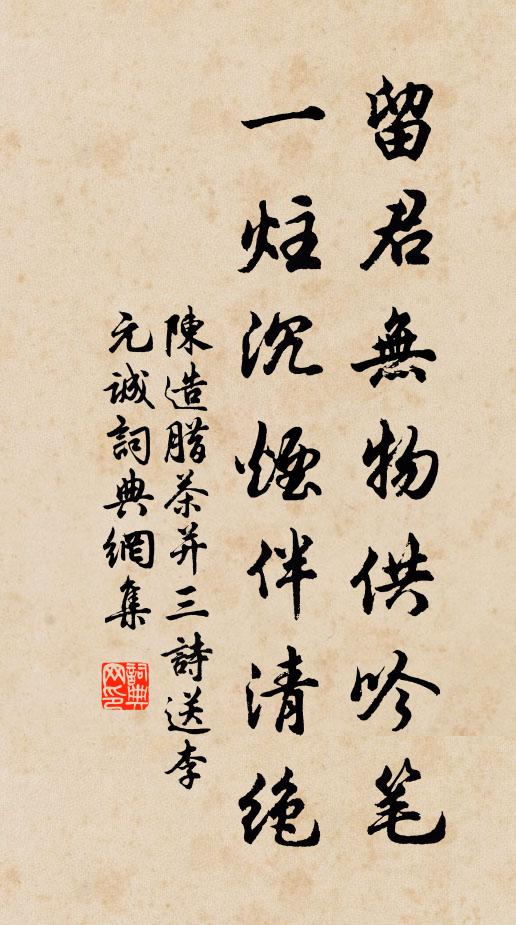 留君無物供吟笔
一炷沉煙伴清绝
陳造腊茶并三詩送李
元誠詞典網集
詞典网印